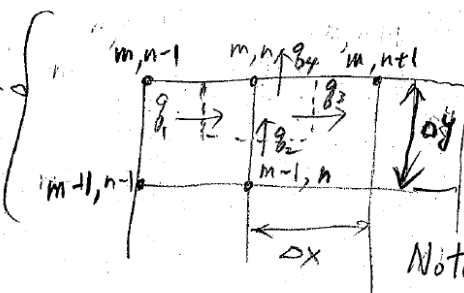 m,n-1 m,n q4 m,n+1
q1 q3
q2 Δy
m+1,n-1 m-1,n
Δx
Not